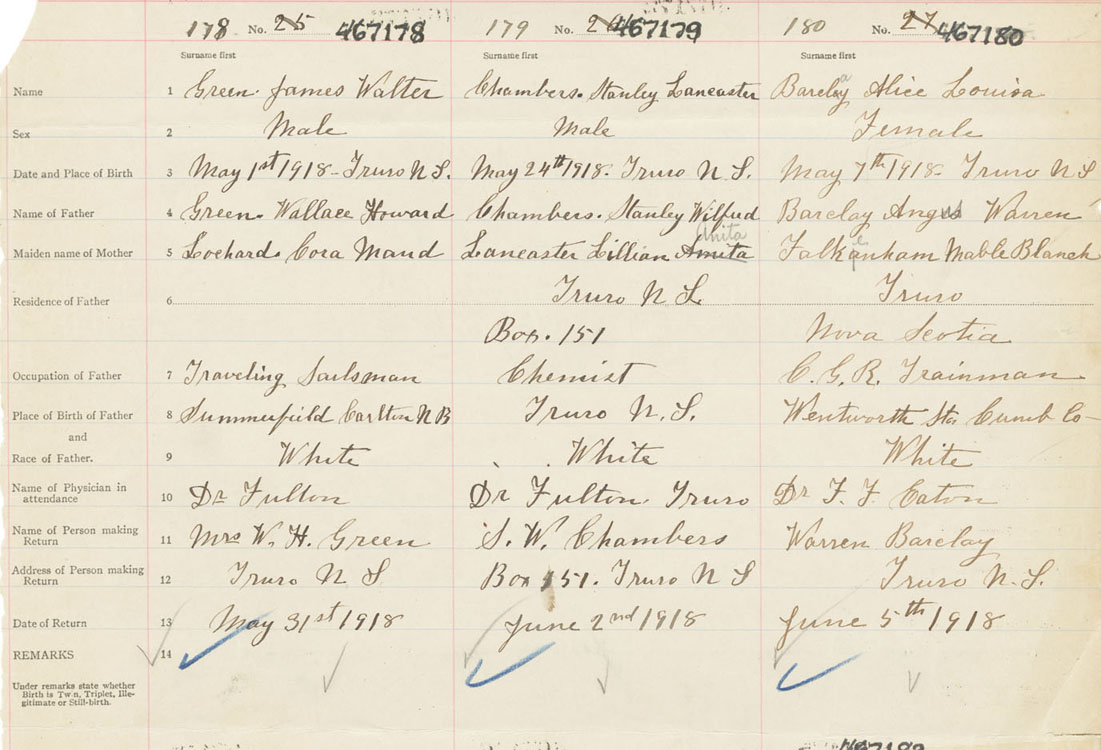 178 No. 25 467178 179 No. 26 467179 180 No. 27 467180
Surname first Surname first Surname first
Name 1 Green. James Walter Chambers. Stanley Lancaster Barclay Alice Louisa
Sex 2 Male Male Female
Date and Place of Birth 3 May 1st 1918 - Truro N S. May 24th 1918. Truro N. S. May 7th 1918 - Truro N S
Name of Father 4 Green. Wallace Howard Chambers. Stanley Wilfred Barclay Angus Warren
Anita e
Maiden name of Mother 5 Lochard. Cora Maud Lancaster Lillian Amita Falkenham Mable Blanch
Residence of Father 6 Truro N S. Truro
Box. 151 Nova Scotia
Occupation of Father 7 Traveling Sailsman Chemist C. G. R. Trainman
Place of Birth of Father 8 Summerfield Carlton N B Truro N. S. Wentworth Sta Cumb Co
and
Race of Father. 9 White White White
Name of Physician in
attendance 10 Dr Fulton Dr Fulton Truro Dr F. F. Eaton
Name of Person making
Return 11 Mrs W. H. Green S. W. Chambers Warren Barclay
Address of Person making
Return 12 Truro N S Box 151. Truro N S Truro N. S.
Date of Return 13 May 31st 1918 June 2nd 1918 June 5th 1918
REMARKS 14
Under remarks state whether
Birth is Twin, Triplet, Ille-
gitimate or Still-birth.